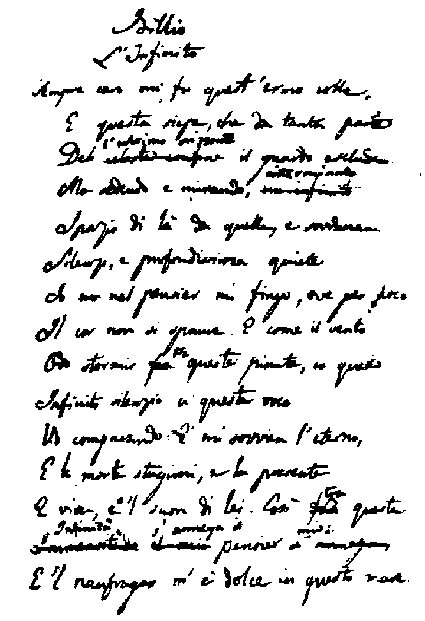 Idillio
L'Infinito
Sempre caro mi fu quest'ermo colle,
E questa siepe, che da tanta parte
l'ultimo orizzonte
Del celeste confine il guardo esclude.
interminato
Ma sedendo e mirando, un infinito
Spazio di là da quella, e sovrumani
Silenzi, e profondissima quiete
Io nel pensier mi fingo, ove per poco
Il cor non si spaura. E come il vento
Odo stormir fra queste piante, io quello
Infinito silenzio a questa voce
Vo comparando: e mi sovvien l'eterno,
E le morte stagioni, e la presente
E viva, e 'l suon di lei. Così questa
Infinità s'annega il mio
pensier s'annega,
E 'l naufragar m'è dolce in questo mare.